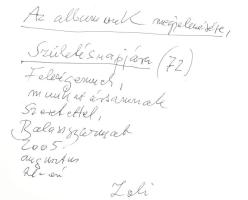 Az albumunk megjelenésére,
Születésnapjára (72)
Feleségemnek,
munkatársamnak
Szeretettel,
Balassagyarmat
2005.
augusztus
Zoli